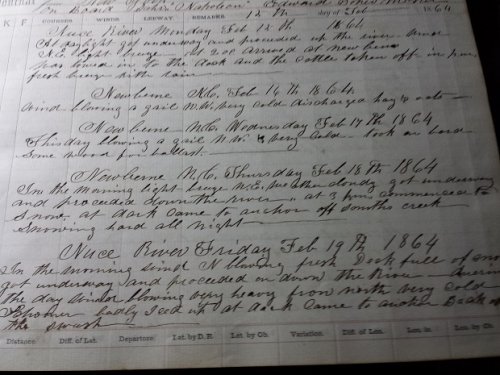 K F COURSES WINDS LEEWAY REMARKS 12 th day of Feb 1864
Nuce River Monday Feb 12 th 1864
At daylight got underway and proceeded up the river wind
N.E. light breeze at 2.00 arrived at Newberne
was towed in to the dock and the cattle taken off in
fresh breeze with rain
Newberne N.C. Feb 14 th 1864
wind blowing a gail N.W. very cold discharged hay & oats
Newberne N.C. Wednesday Feb 17 th 1864
This day blowing a gail N.W. & very cold took on bord
Some wood for ballast
Newberne N.C. Thursday Feb 18 th 1864
In the morning light breeze N.E. weather cloudy got underway
and proceeded down the river at 3 commenced to
Snow. at dark came to anchor off Smiths creek
Snowing hard all night
Nuce River Friday Feb 19 th 1864
In the morning wind N blowing fresh Deck full of snow
got underway and proceeded on down the River
the day wind blowing very heavy from north very cold
badly Iced up at dark came to anchor Back of
the swash
Distance. Diff. of Lat. Departure. Lat. by D. R. Lat. by Ob. Variation. Diff. of Lon. Lon. in. Lon. by Ob.